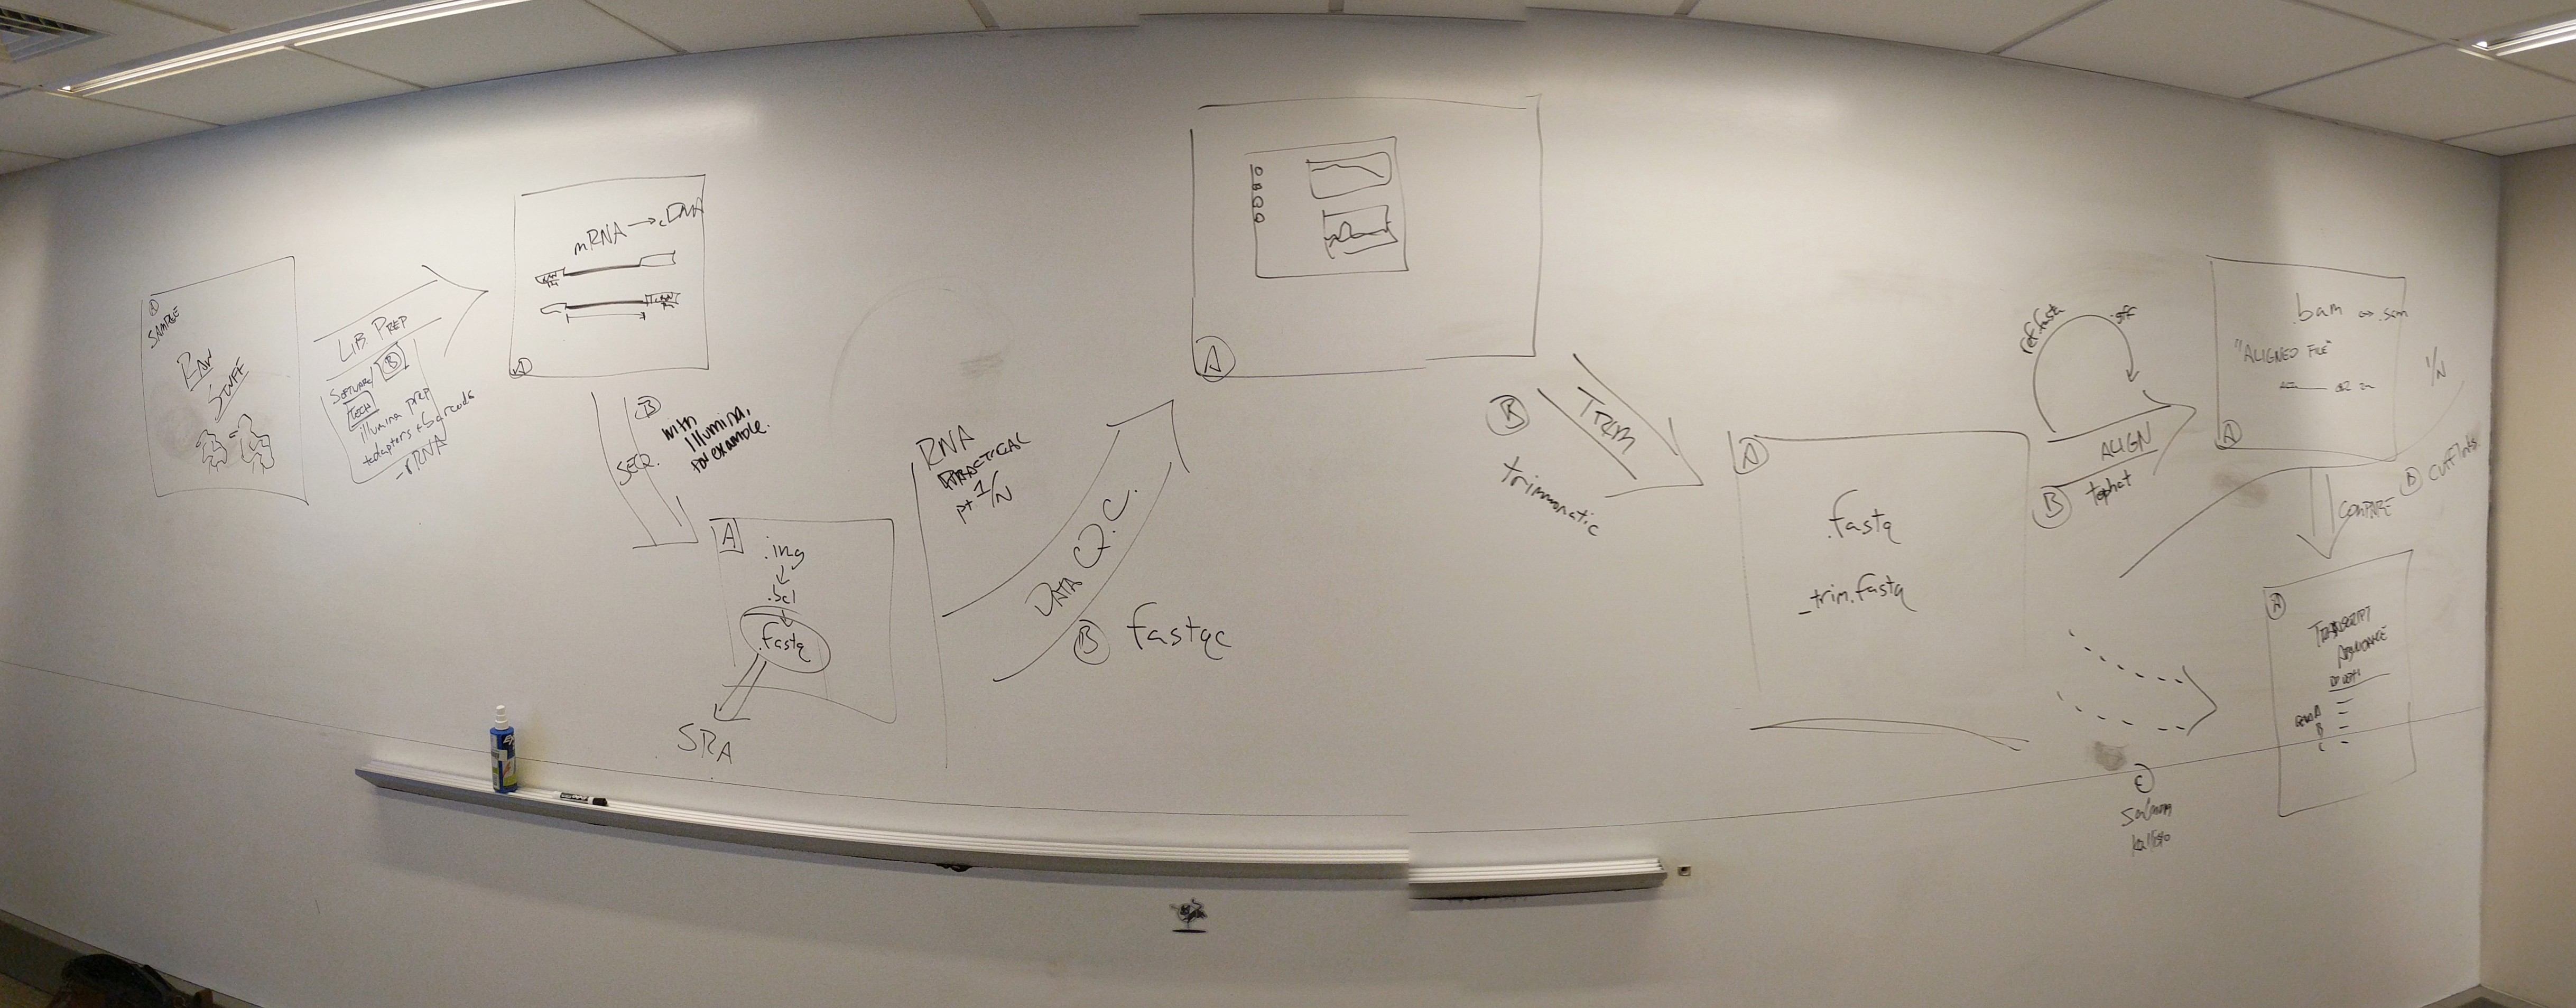 A
SAMPLE
RAW
STUFF
LIB PREP
SOFTWARE/ B
TECH
illumina prep
+adapters + barcode
- rRNA
mRNA → cDNA
A
B
SEQ.
with
Illumina,
for example.
A
.img
.bcl
.fastq
SRA
RNA
PRACTICAL
pt. 1/N
DATA Q.C.
B fastqc
A
B
TRIM
trimmomatic
A
.fastq
_trim.fastq
ref.fasta
.gff
ALIGN
B tophat
.bam ↔ .sam
"ALIGNED FILE"
A
1/N
COMPARE
B cufflinks
A
TRANSCRIPT
ABUNDANCE
A
B
C
C
salmon
kallisto